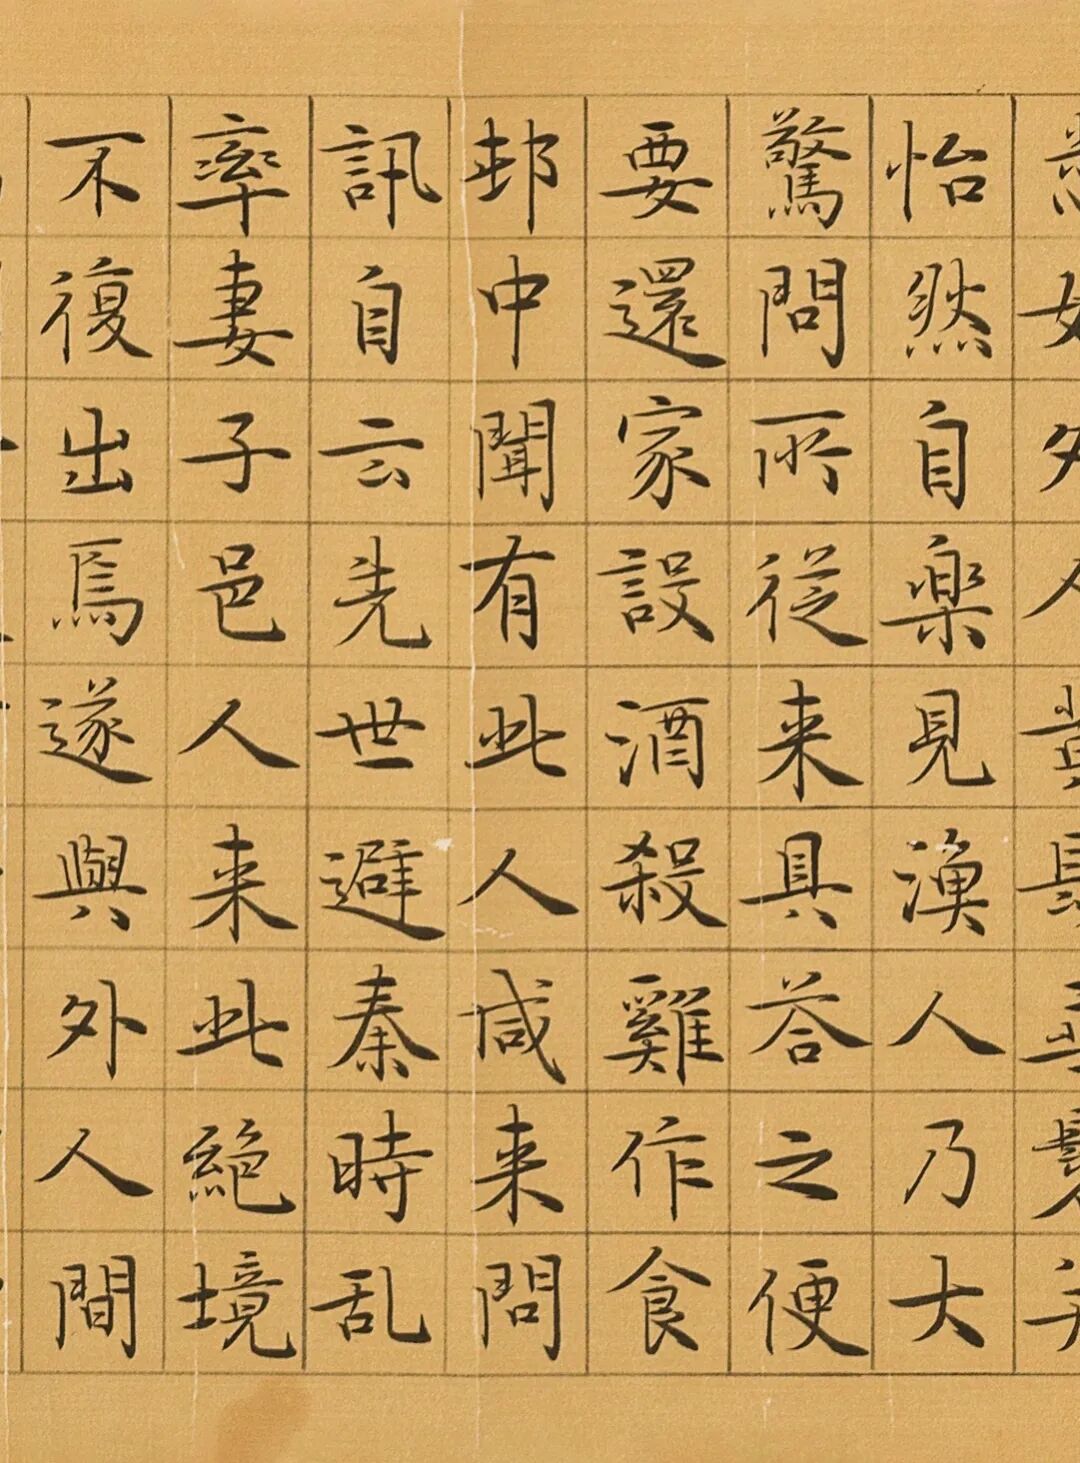 怡然自楽見漁人乃大
驚問所従来具荅之便
要還家設酒殺雞作食
邨中聞有此人咸来問
訊自云先世避秦時乱
率妻子邑人来此絶境
不復出焉遂與外人間